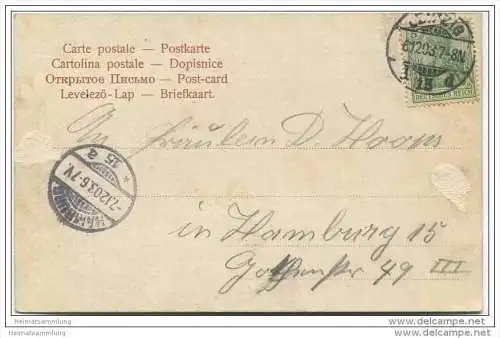 Carte postale — Postkarte
Cartolina postale — Dopisnice
Открытое Письмо — Post-card
Levelező-Lap — Briefkaart.
LEIPZIG
6.12.03.7-8N.
DEUTSCHES REICH
An Fräulein D. Hoops
HAMBURG
7.12.03.6-7V.
* 15 a
in Hamburg 15
49 III
Heimatsammlung
Heimatsammlung